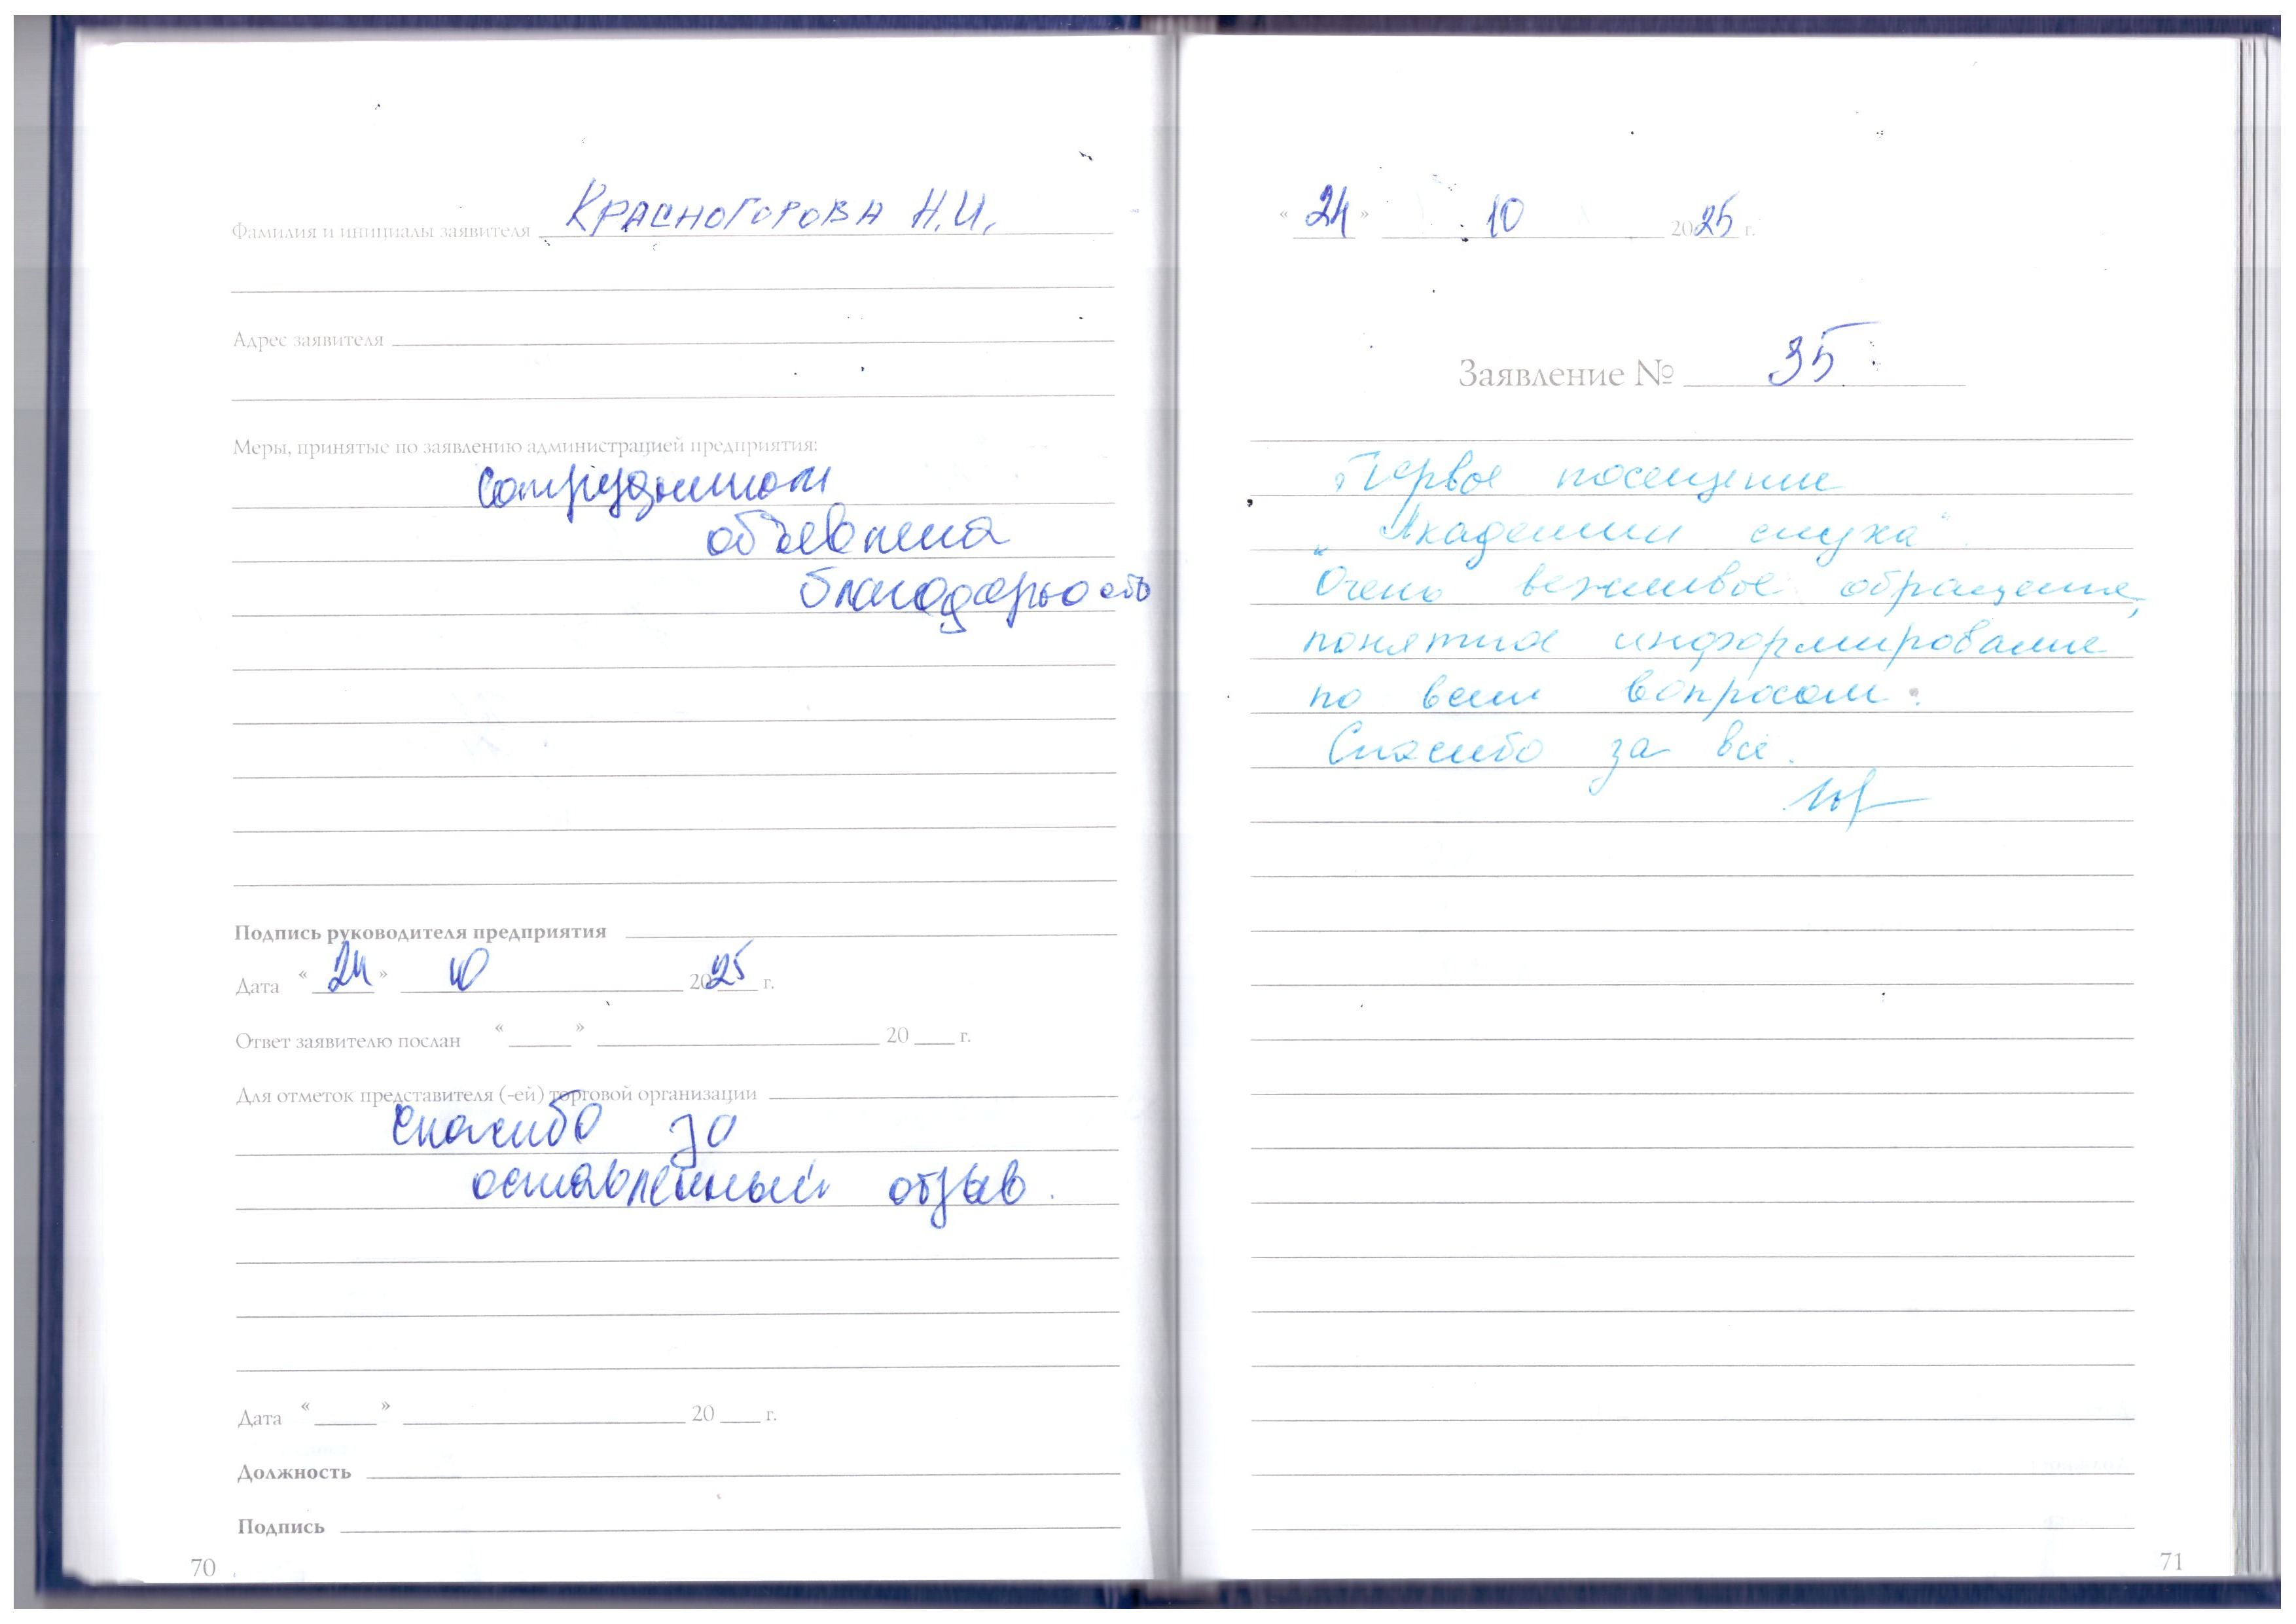 Фамилия и инициалы заявителя Красногорова Н.И.
Адрес заявителя
Меры, принятые по заявлению администрацией предприятия:
Сотрудникам
объявлена
благодарность
Подпись руководителя предприятия
Дата «24» 10 2025 г.
Ответ заявителю послан « » 20 г.
Для отметок представителя (-ей) торговой организации
Спасибо за
оставленный отзыв.
Дата « » 20 г.
Должность
Подпись
70
«24» 10 2025 г.
Заявление № 35
Первое посещение
„Академии слуха“.
Очень вежливое обращение,
понятное информирование
по всем вопросам.
Спасибо за всё.
71